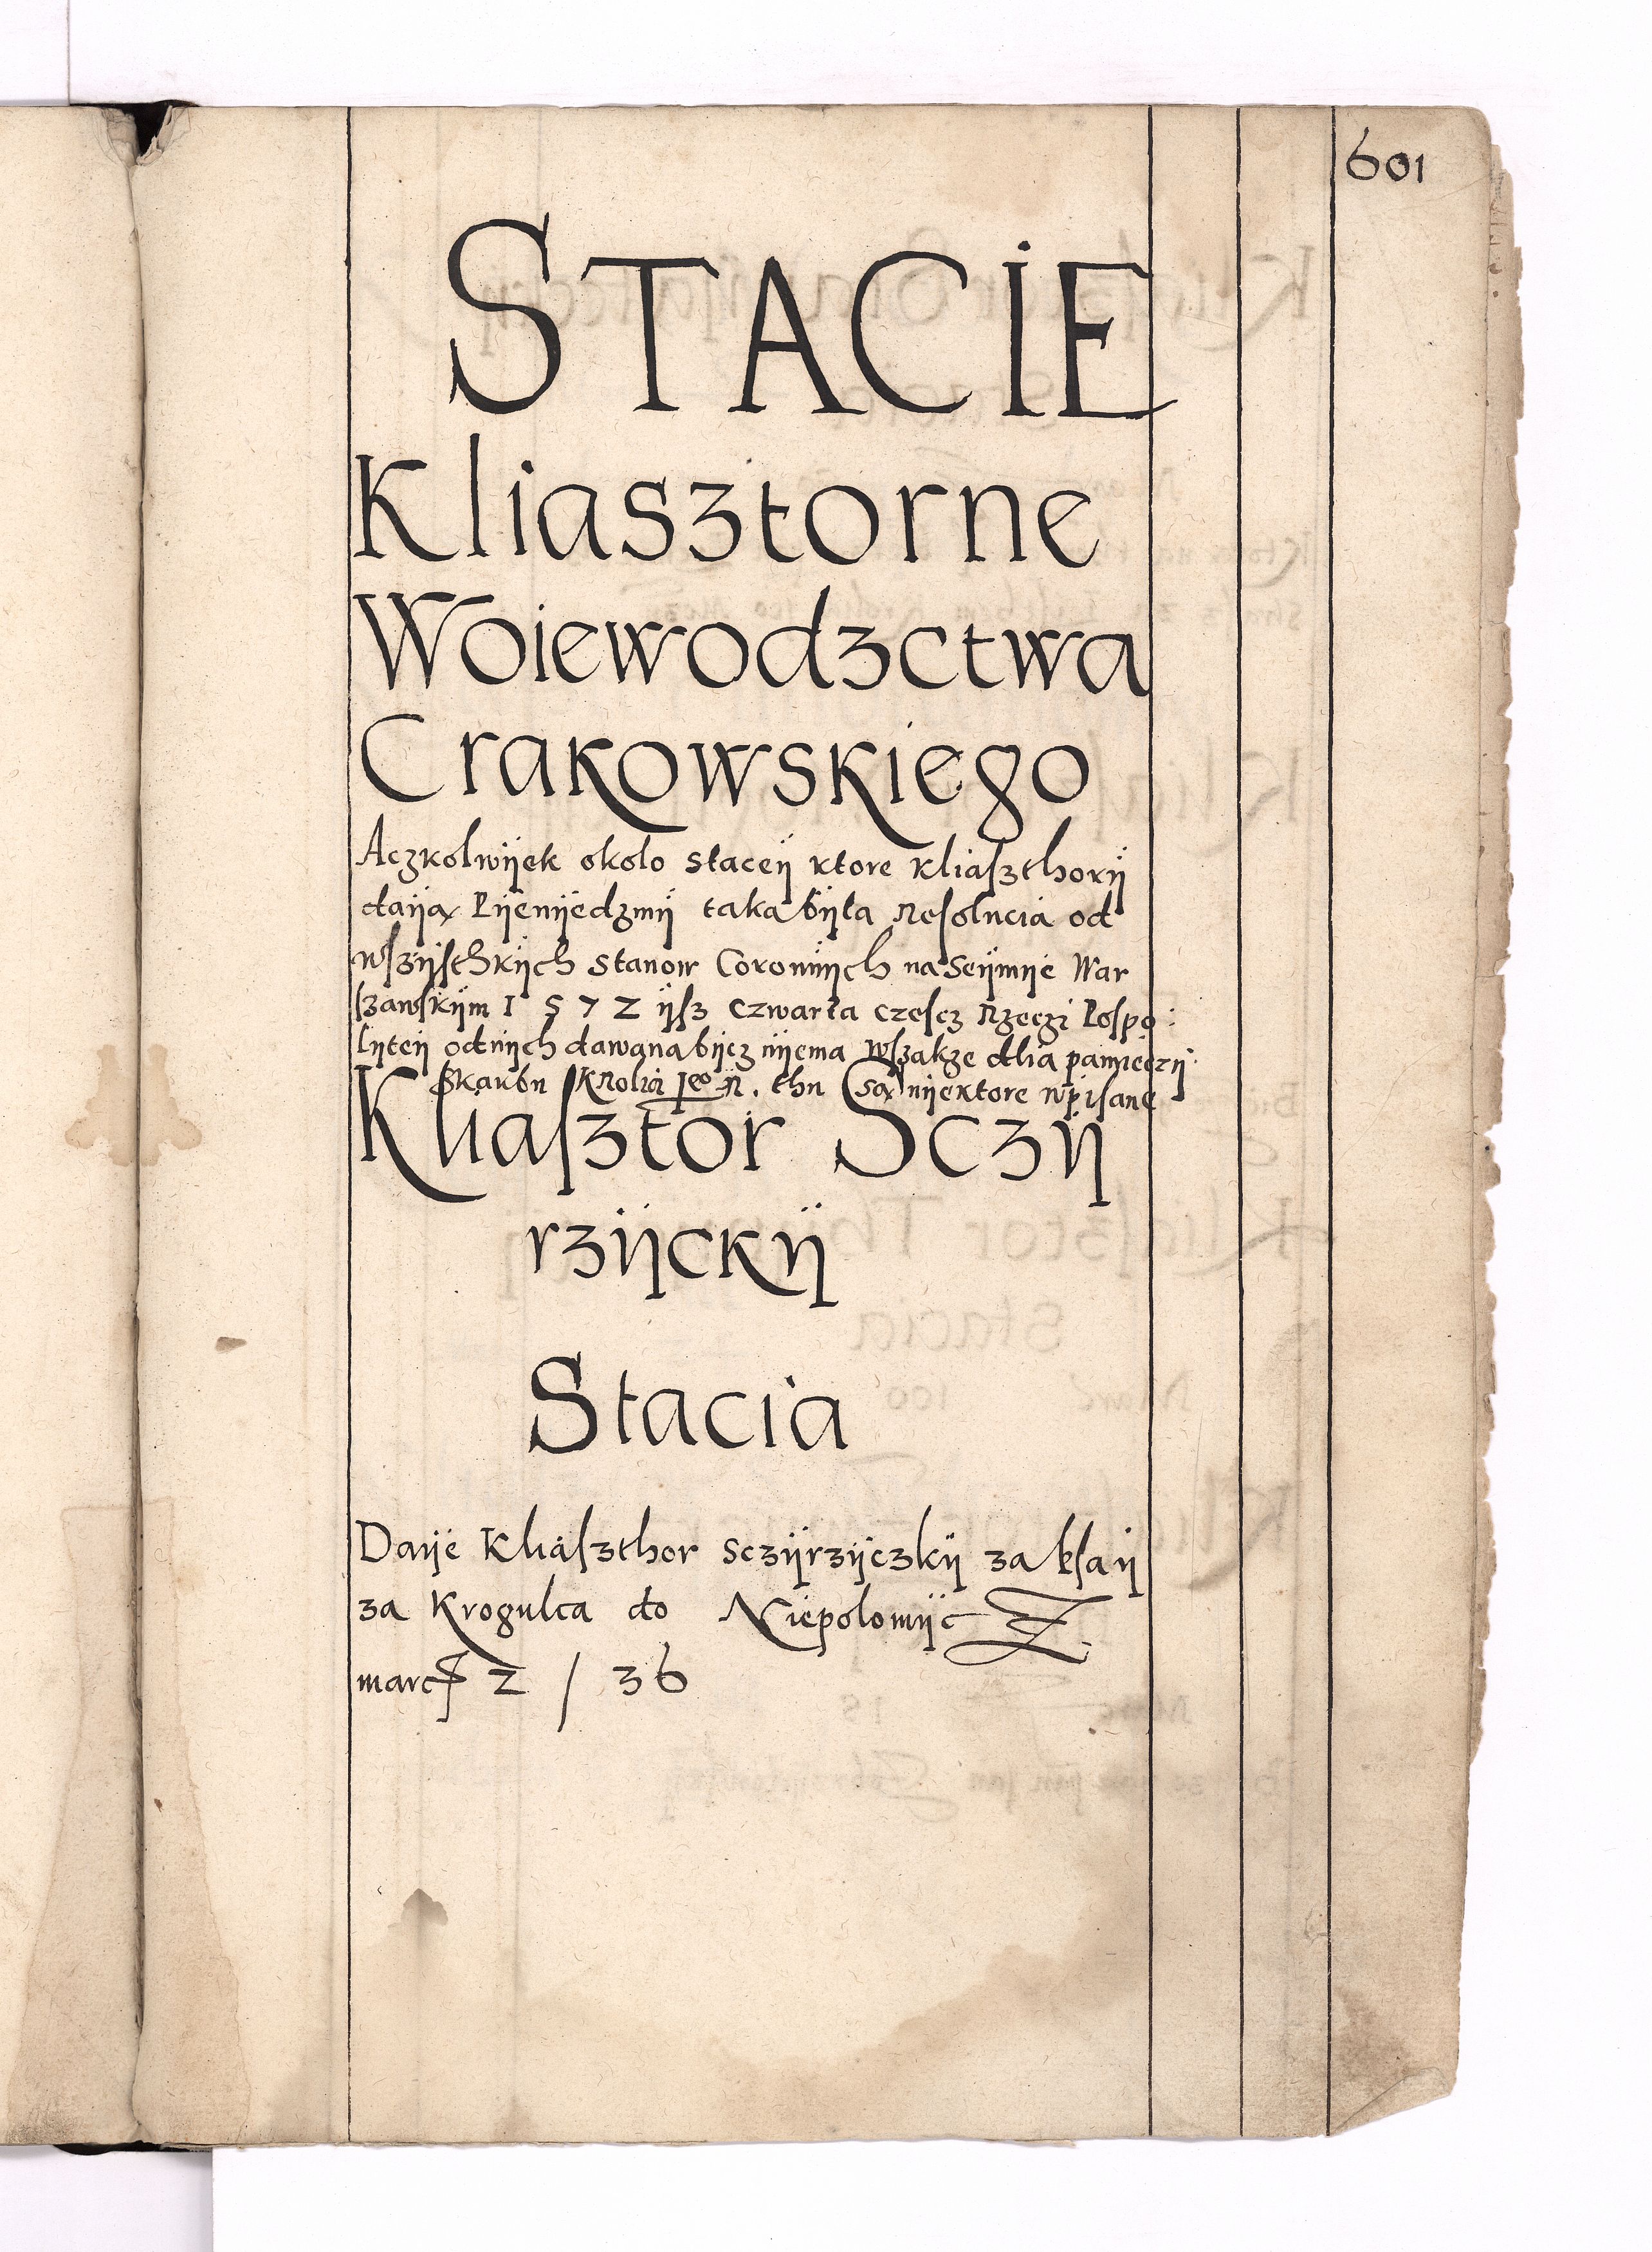 601
STACIE
Kliasztorne
Woiewodzctwa
Crakowskiego
Aczkolwÿek około staceÿ ktore kliaſzthorÿ
daÿą Pÿenÿedzmÿ taka bÿła Reſolucia od
wſzÿſthkÿch Stanow Coronnÿch na Seÿmÿe War
ſzawſkÿm 1572 ÿſz czwarta czeſcz Rzeczi Poſpo:
lÿteÿ od nÿch dawana bÿcz nÿema wſzakże dlia pamieczÿ
Skarbu Krolia Jeo M. thu są nÿektore wpiſane
Kliaſztor Sczÿ
rzÿckÿ
Stacia
Daÿe Kliaſzthor Sczÿrzÿczkÿ za pſaÿ
za Krogulca do Niepolomÿc
marc 2 / 36